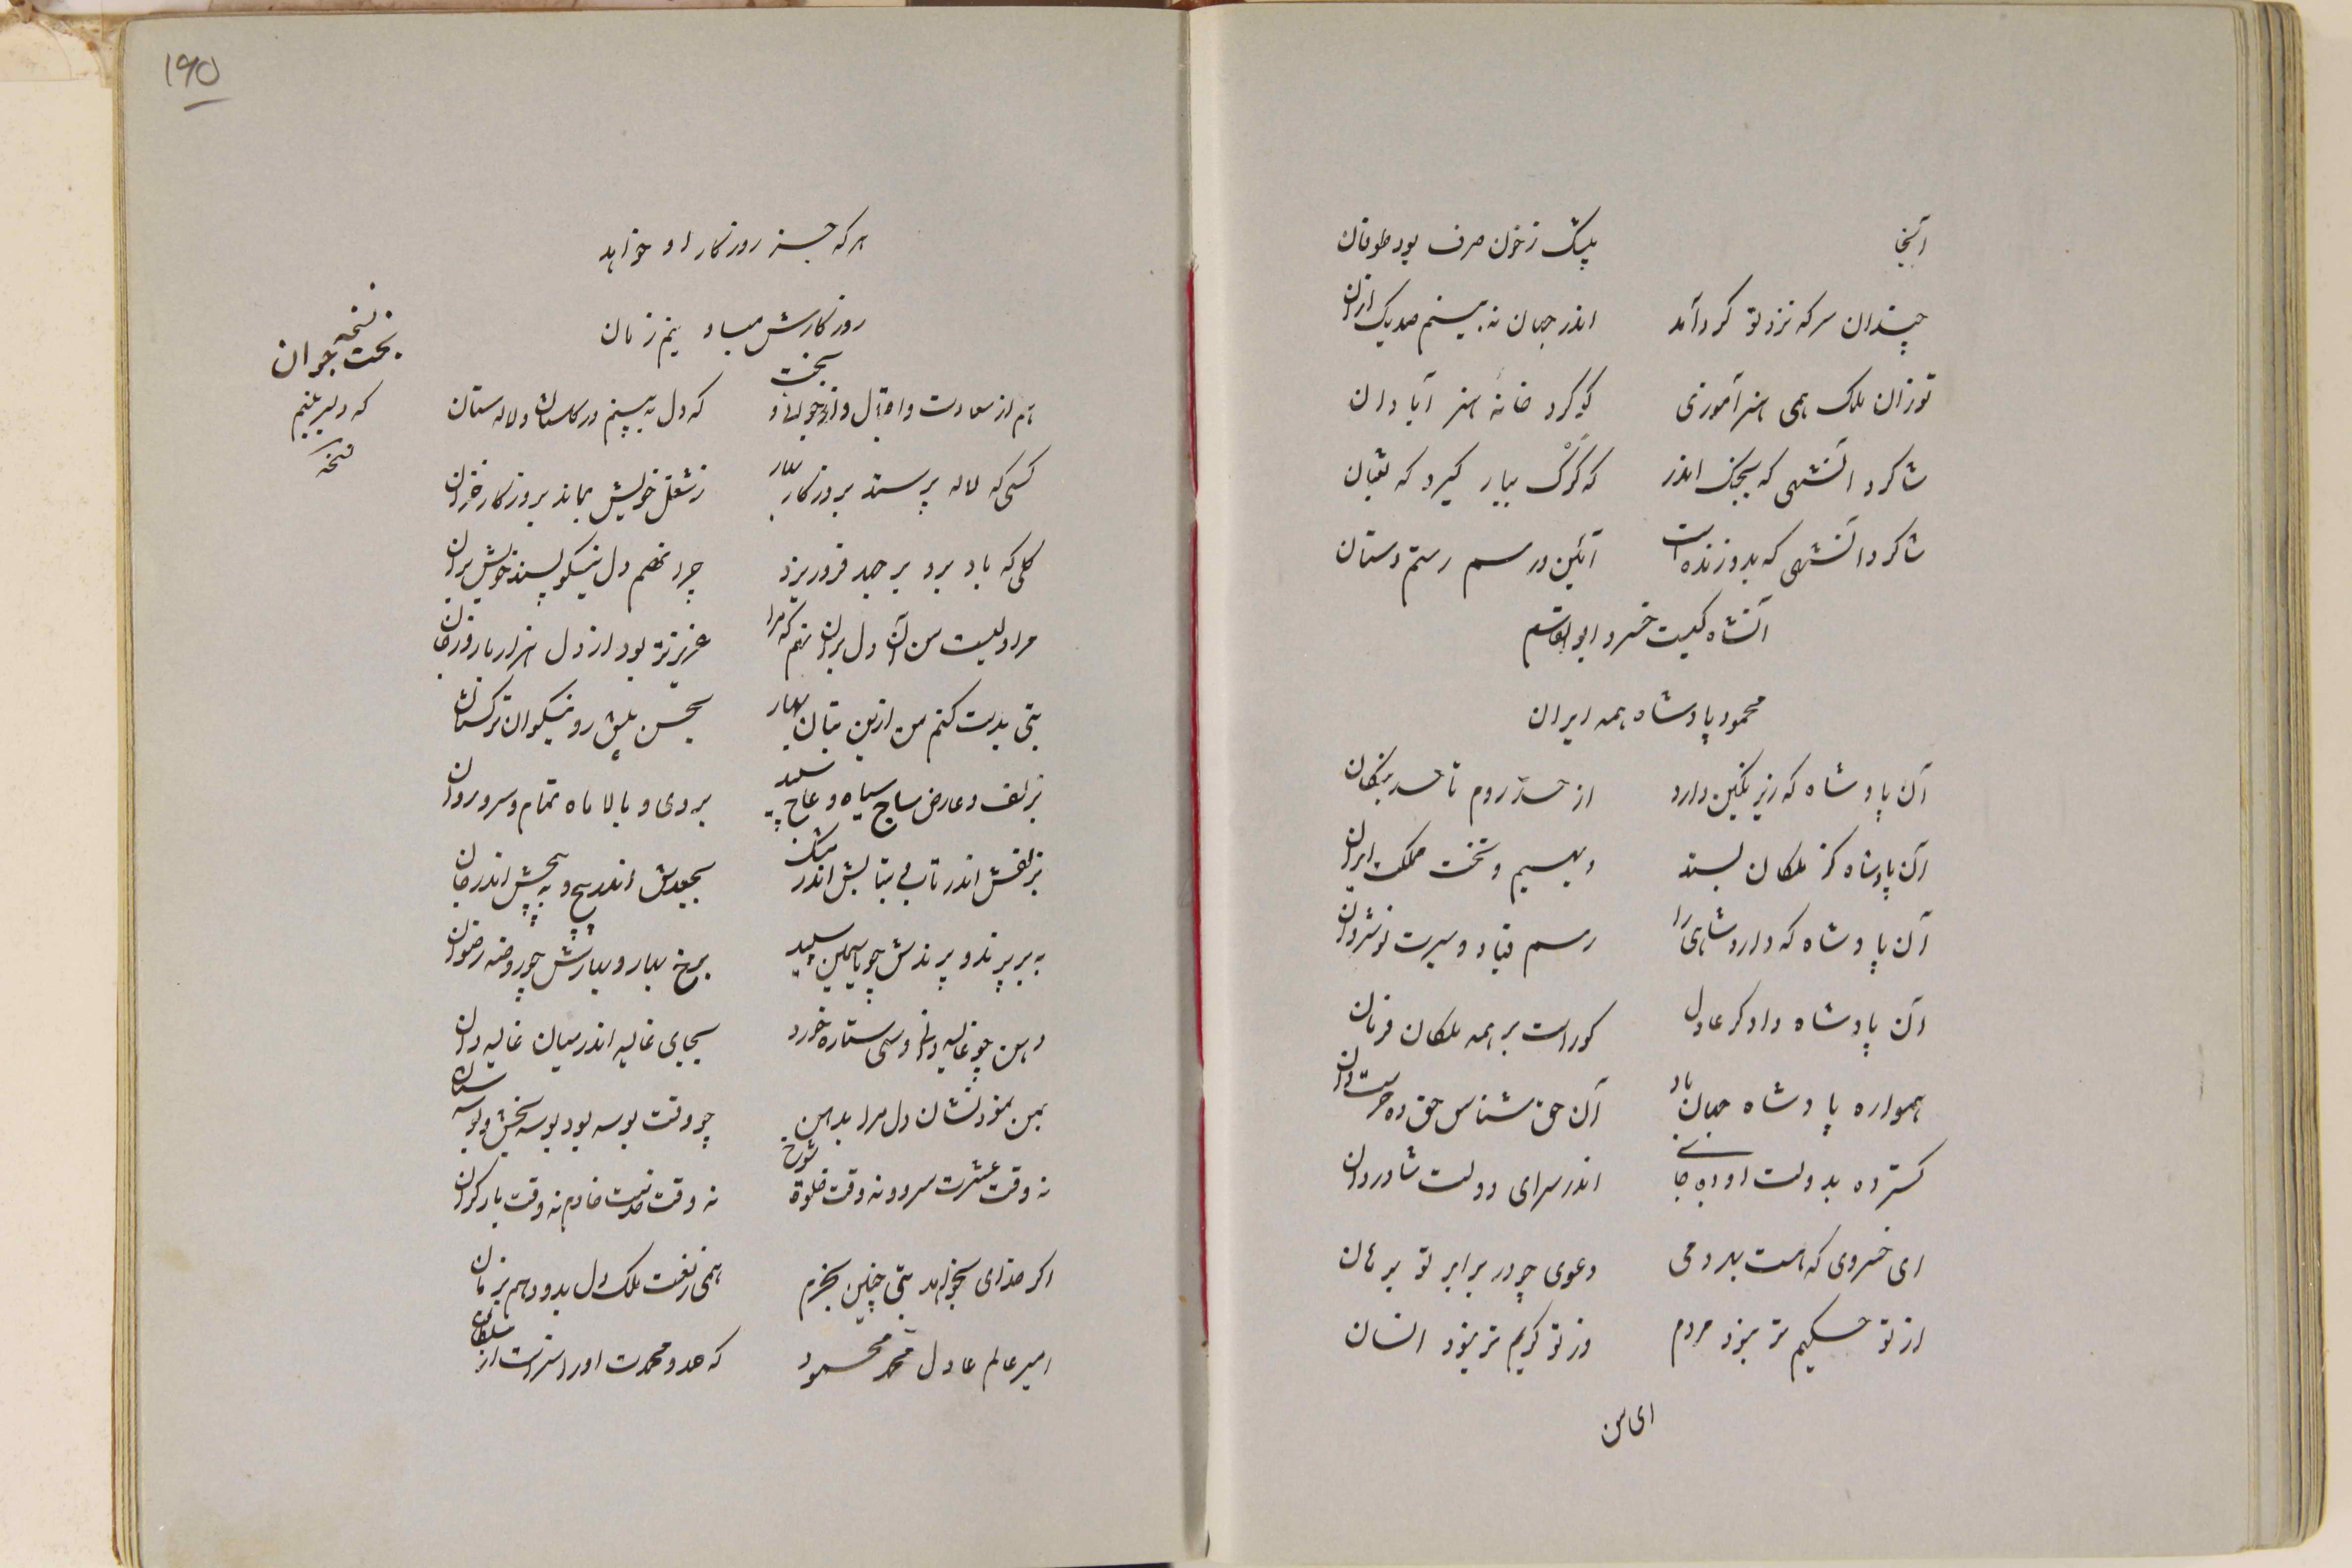 آنجا پیلیش زخون صرف بود طوفان
چندان سرکه نزد تو گرد آمد اندر جهان نه بینم صدیک ازان
تو زان ملک همی هنر آموزی کو کرد خانه هنر آبادان
شاگرد آنشهی که بجنگ اندر که کَرْگ ببار گیرد که ثعبان
شاگرد آنشهی که بدو زنده است آئین و رسم رستم دستان
آنشاه کیست خسرو ابوالقاسم
محمود پادشاه همه ایران
آن پادشاه که زیر نگین دارد از حد روم تا حد
آن پادشاه کز ملکان بستد دیهیم و تخت مملکت ایران
آن پادشاه که دارد شاهی را رسم قباد و سیرت نوشروان
آن پادشاه دادگر عادل کوراست بر همه ملکان فرمان
همواره پادشاه جهان باد آن حق شناس حق ده حرمت دان
گسترده بدولت او اندر سرای دولت شادروان
ای خسروی که هست بهر دعوی چو در برابر تو برهان
از تو حکیم تر نبود مردم وز تو کریم تر نبود انسان
ای من
۱۹۵
هرکه جز روزگار او خواهد
روزگارش مباد نیم زمان
نسخه
بخت جوان
هم از سعادت و اقبال و از بخت که دل نه بینم در گلستان و لاله ستان
که دلیر بنیم
نسخه
کسی که لاله پرستد بروزگار بهار ز شغل خویش بماند بروزگار خزان
گلی که باد برو بر جهد فرو ریزد چرا نهم دل نیکو پسند خویش بران
مرا دلیست من آن دل بران نهم که مرا عزیزتر بود از دل هزار بار و ز جان
بتی بدست کنم من ازین بتان بهار بحسن پیش رو نیکوان ترکستان
بزلف و عارض ساج سیاه و عاج سپید بروی و بالا ماه تمام و سرو روان
بزلفش اندر تاب و بتابش اندر مشک بجعدش اندر پیچ و به پیچش اندر جان
به بر پرند و پرندش چو یاسمین سپید برخ بهار و بهارش چو روضه رضوان
دهن چو غالیه دانی و سی ستاره خرد بجای غالیه اندر میان غالیه دان
بمن نمود نشان دل مرا بدهن چو وقت بوسه بود بوسه بخش و بوسه ستان
نه وقت عشرت سرد و نه وقت خلوة شوخ نه وقت خدمت خادم نه وقت بار گران
اگر خدای بخواهد بتی چنین بخرم همی ز نعمت ملک دل بدو دهم بزمان
امیر عالم عادل محمد محمود که حمد و محمدت اوراست از سلطان